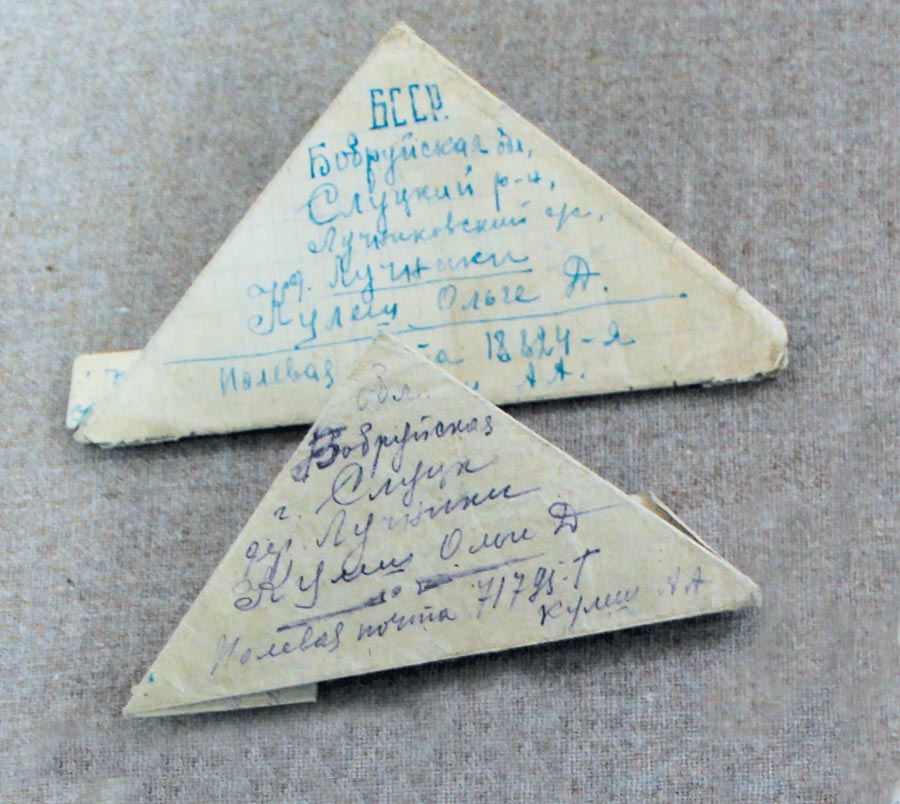 БССР.
Бобруйская обл,
Слуцкий р-н,
Лучниковский с/с,
дер. Лучники
Кулеш Ольге Д.
Полевая 18824-я
А А.
обл.
Бобруйская
г. Слуцк
дер. Лучники
Кулеш Ольги Д
Полевая почта 71795-Т
Кулеш А А